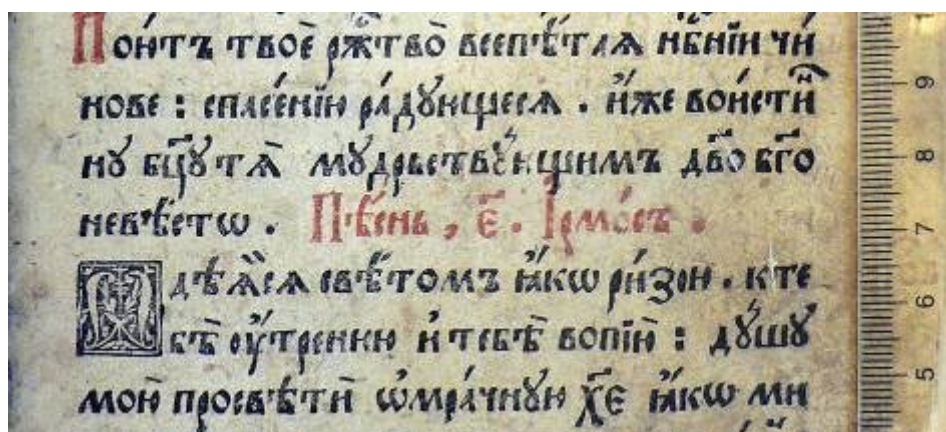 Пою́тъ твоѐ рж҃тво̀ всепѣ́тая нб҃нїи чи́
нове : спасе́нїю ра́дꙋющеся . и҆́же вои́сти
нꙋ бц҃ꙋ тѧ̀ мꙋ́дрьствꙋющимъ дв҃о бг҃о
невѣ́стѡ . Пѣ́снь , є҃ . І҆рмо́съ .
Ѡ҆дѣѧ́йсѧ свѣ́томъ ꙗ҆́кѡ ри́зою . к те
бѣ̀ ᲂу҆́тренюю и҆ тебѣ̀ вопїю̀ : дꙋ́шꙋ
мою̀ просвѣтѝ ѡ҆мра́чнꙋю хе҃ ꙗ҆́кѡ ми